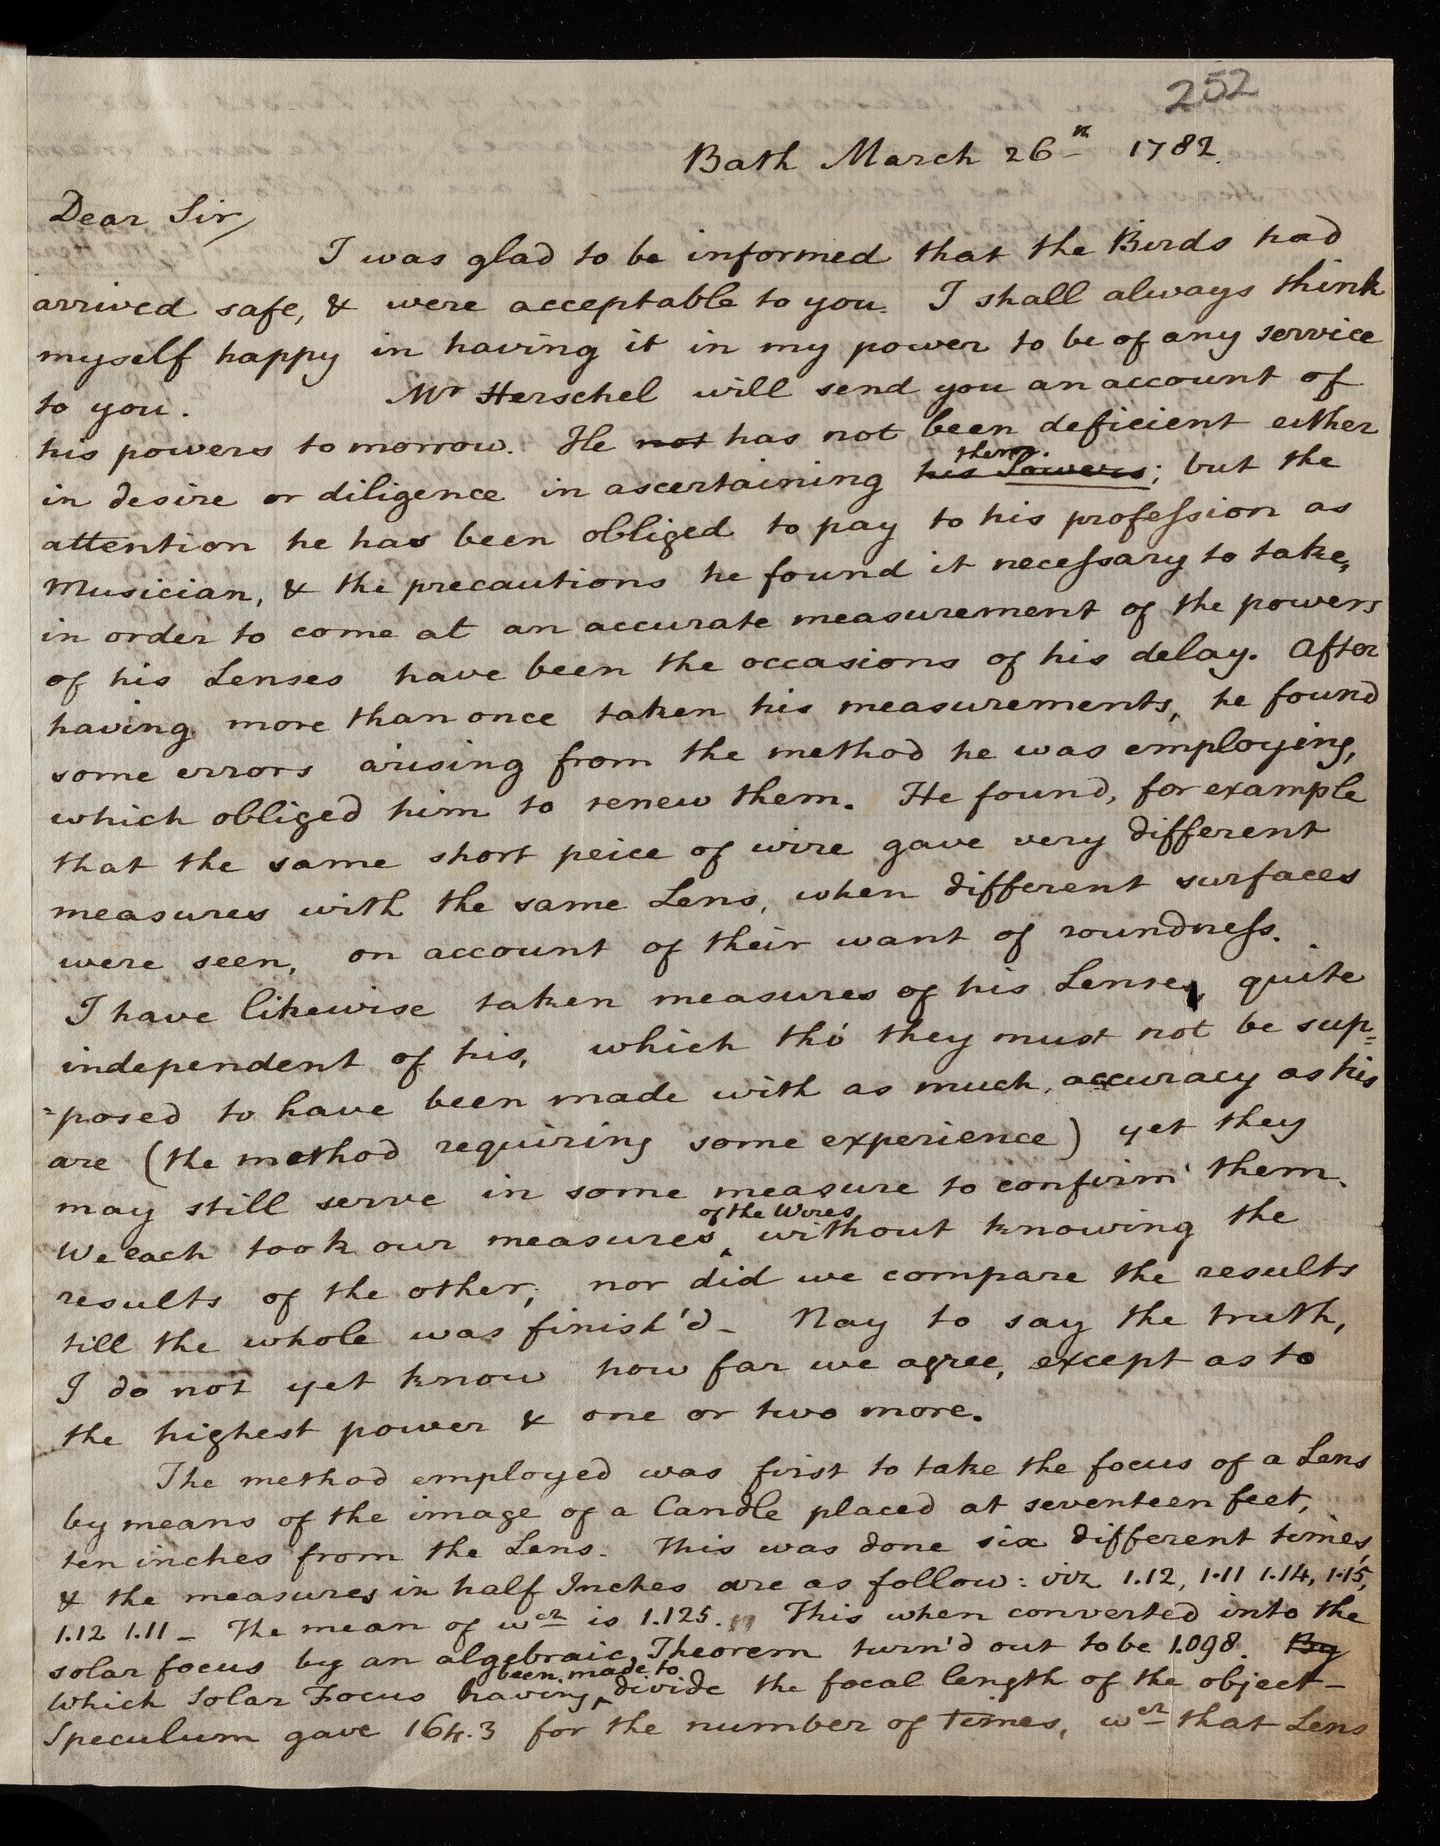 252
Bath March 26th 1782.
Dear Sir,
I was glad to be informed that the Birds had
arrived safe, & were acceptable to you. I shall always think
myself happy in having it in my power to be of any service
to you. Mr Herschel will send you an account of
his powers to morrow. He not has not been deficient either
them.
in desire or diligence in ascertaining his Powers; but the
attention he has been obliged to pay to his profession as
Musician, & the precautions he found it necessary to take,
in order to come at an accurate measurement of the powers
of his Lenses have been the occasions of his delay. After
having more than once taken his measurements, he found
some errors arising from the method he was employing,
which obliged him to renew them. He found, for example
that the same short peice of wire gave very different
measures with the same Lens, when different surfaces
were seen, on account of their want of roundness.
I have likewise taken measures of his Lenses, quite
independent of his, which tho' they must not be sup=
=posed to have been made with as much accuracy as his
are (the method requiring some experience) yet they
may still serve in some measure to confirm them.
of the Wires
We each took our measures ‸ without knowing the
results of the other; nor did we compare the results
till the whole was finish'd - Nay to say the truth,
I do not yet know how far we agree, except as to
the highest power & one or two more.
The method employed was first to take the focus of a Lens
by means of the image of a Candle placed at seventeen feet,
ten inches from the Lens. This was done six different times,
& the measures in half Inches are as follow: viz 1.12, 1.11 1.14, 1.15,
1.12 1.11 - The mean of wch is 1.125. This when converted into the
solar focus by an algebraic Theorem turn'd out to be 1.098. By
been made to
which Solar Focus having ‸ divide the focal length of the object-
Speculum gave 164.3 for the number of times, wch that Lens